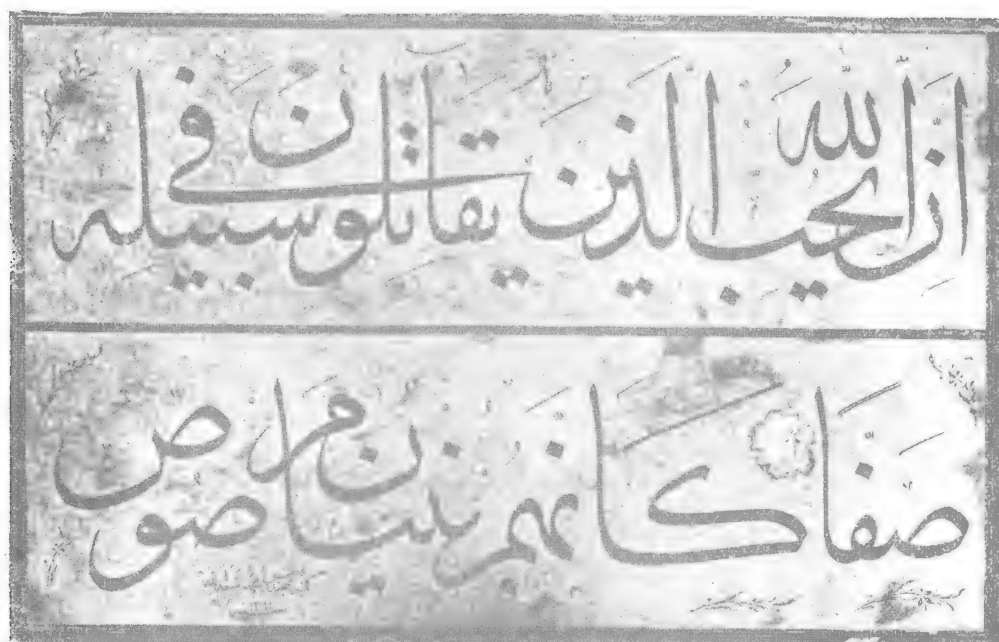 ان الله يحب الذين يقاتلون في سبيله
صفا كانهم بنيان مرصوص